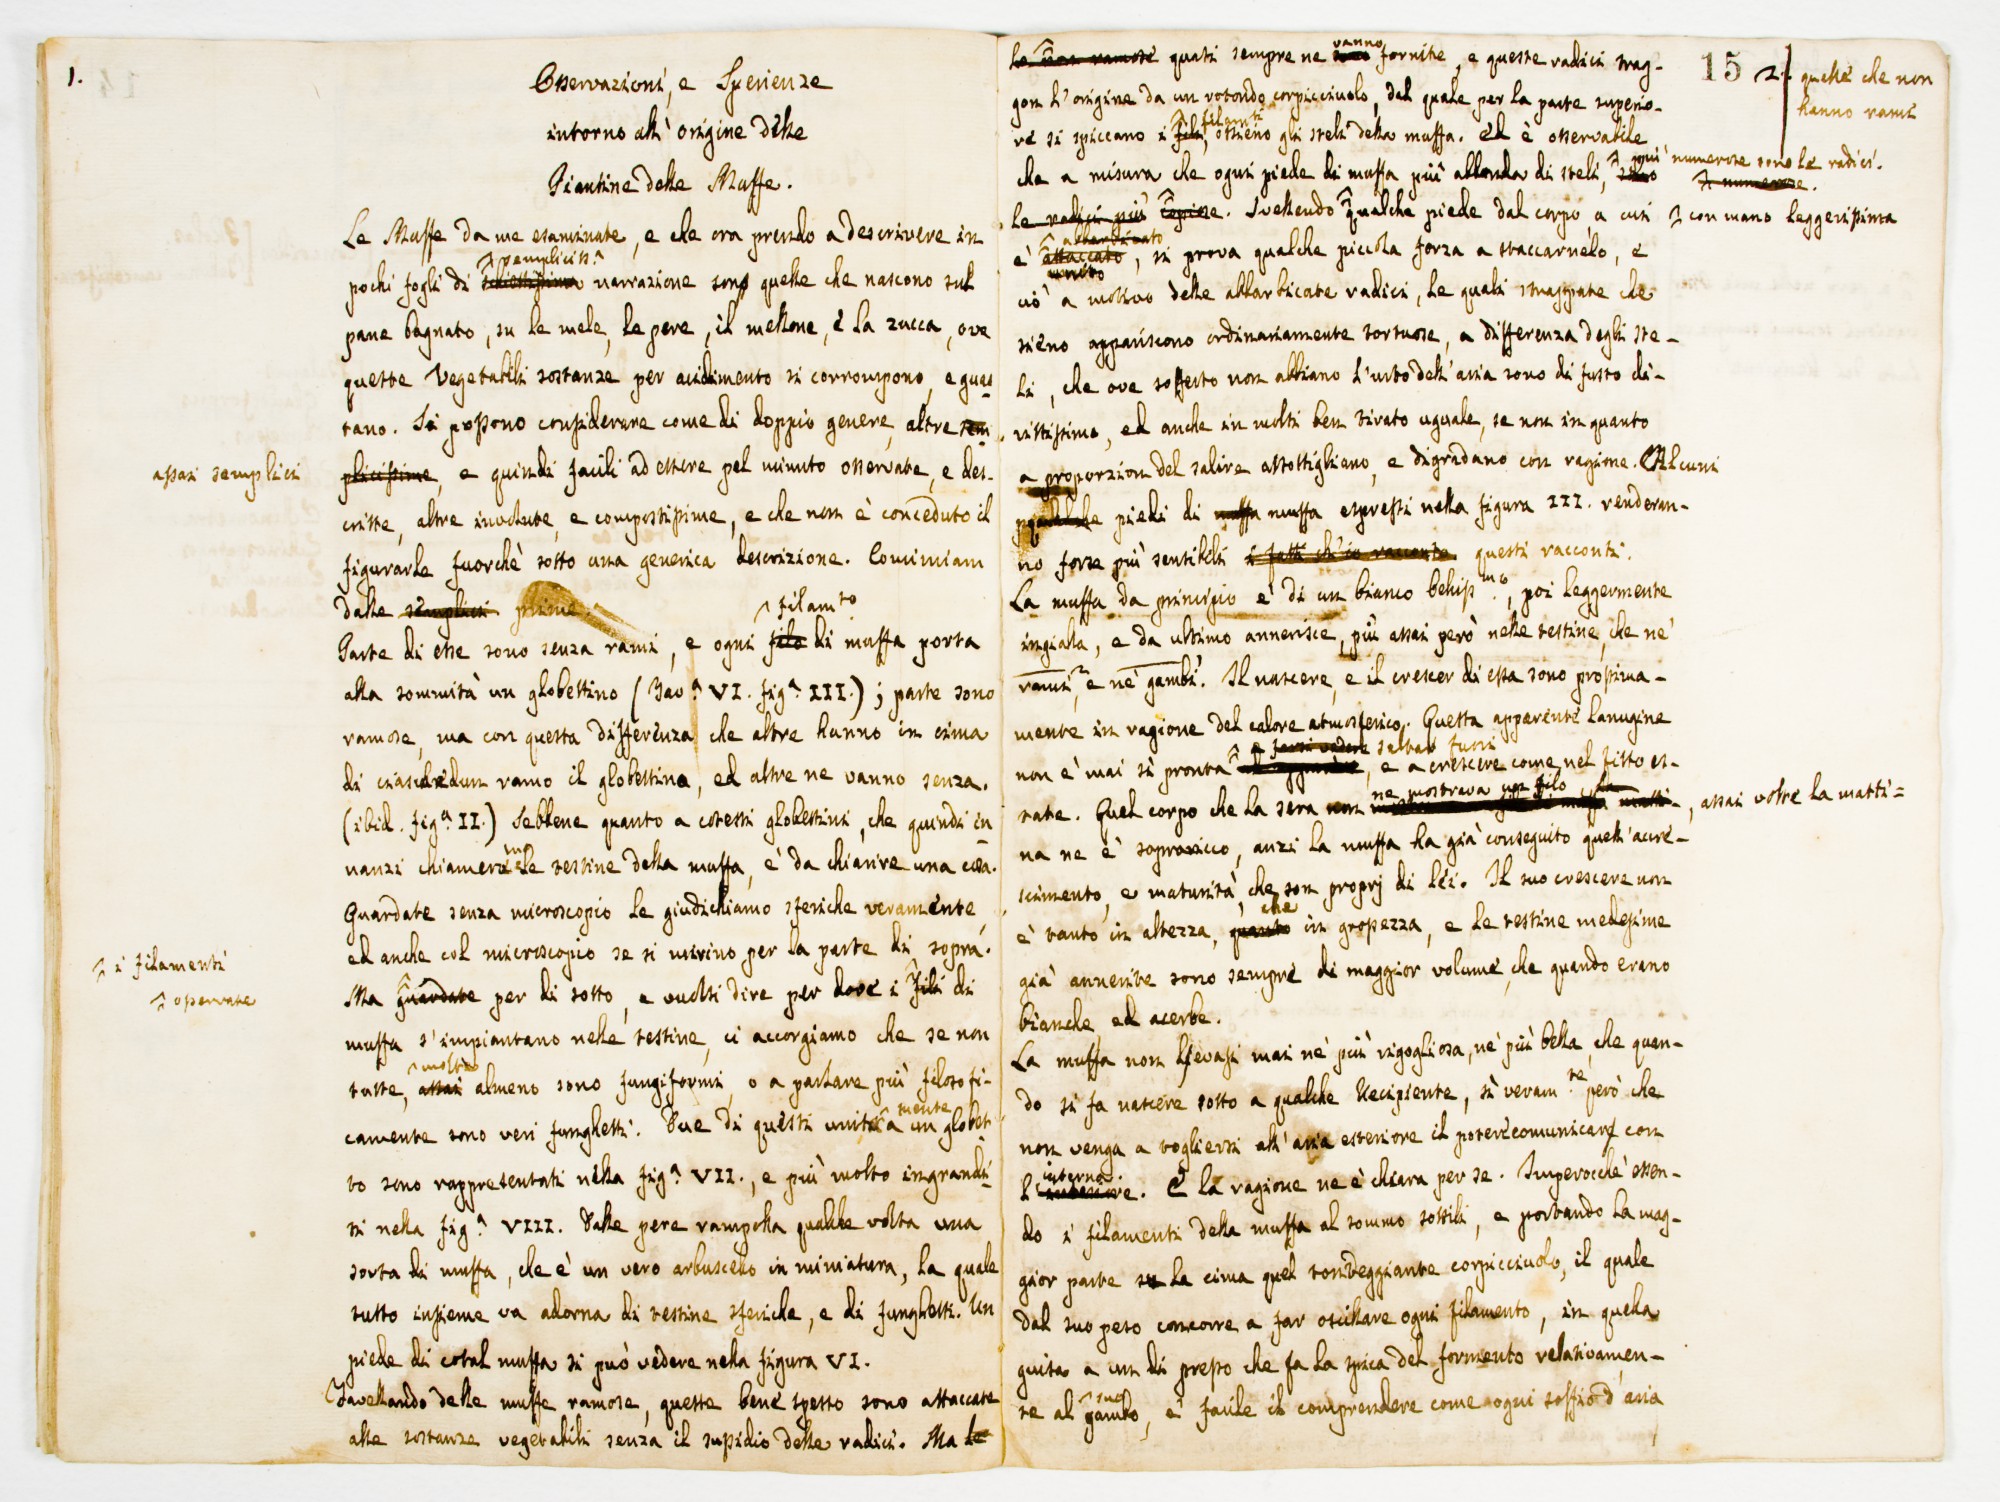 1.
Osservazioni, e Sperienze
intorno all' origine delle
Piantine delle Muffe.
Le Muffe da me esaminate, e che ora prendo a descrivere in
pochi fogli di semplicissª narrazione sono quelle che nascono sul
pane bagnato, su le mele, le pere, il mellone, e la zucca, ove
queste vegetabili sostanze per accidimento si corrompono, e guas
tano. Si possono considerare come di doppio genere, altre sem
assai semplici
plicissime, e quindi facili ad essere pel minuto osservate, e des-
critte, altre involute, e compostissime, e che non è conceduto il
figurarle fuorchè sotto una generica descrizione. Comincian
dalle semplici prime.
filamto
Parte di esse sono senza rami, e ogni filo di muffa porta
alla sommità un globettino (Tavª VI. figª III.); parte sono
ramose, ma con questa differenza che altre hanno in cima
di ciaschedun ramo il globettino, ed altre ne vanno senza.
(ibid. figª II.) Sebbene quanto a cotesti globettini, che quindi in
nanzi chiameremo le testine della muffa, è da chiarire una cosa.
Guardate senza microscopio le giudichiamo sferiche veramente,
ed anche col microscopio se si mirino per la parte di sopra.
i filamenti
osservate
Ma guardate per di sotto, e vuolsi dire per dove i fili di
muffa s'impiantano nelle testine, ci accorgiamo che se non
molte
tutte, assai almeno sono fungiformi, o a parlare più filosofi-
camente sono veri funghetti. Due di questi unitamente a un globet
to sono rappresentati nella figª VII., e più molto ingrandi
ti nella figª VIII. Dalle pere rampolla qualche volta una
sorta di muffa, che è un vero arbuscello in miniatura, la quale
tutto insieme va adorna di testine sferiche, e di funghetti. Un
piede di cotal muffa si può vedere nella figura VI.
Favellando delle muffe ramose, queste bene spesso sono attaccate
alle sostanze vegetabili senza il sussidio delle radici. Ma le
15
2.
quelle che non
hanno rami
vanno
ramose quasi sempre ne sono fornite, e queste radici trag-
gon l'origine da un rotondo corpicciuolo, dal quale per la parte superio-
filamti
re si spiccano i fili, ossieno gli steli della muffa. Ed è osservabile
che a misura che ogni piede di muffa più abbonda di steli, sono
più numerose sono le radici.
numerose.
le radici più copiose. Svellendo qualche piede dal corpo a cui
con mano leggerissima
abbarbicato
è attaccato, si prova qualche piccola forza a staccarnelo, e
unito
ciò a motivo delle abbarbicate radici, le quali strappate che
sieno appariscono ordinariamente tortuose, a differenza degli ste-
li, che ove sofferto non abbiano l'urto dell'aria sono di fusto di-
rittissimo, ed anche in molti ben tirato uguale, se non in quanto
a proporzion del salire assottigliano, e digradano con ragione. Alcuni
qualche piedi di muffa muffa espressi nella figura III. renderan-
no forse più sensibili i fatti ch'io racconto questi racconti.
La muffa da principio è di un bianco bellissmo, poi leggermente
ingialla, e da ultimo annerisce, più assai però nelle testine, che ne'
rami, e ne' gambi. Il nascere, e il crescer di essa sono prossima-
mente in ragione del calore atmosferico. Questa apparente lanugine
a farsi vedere saltar fuori
non è mai sì pronta, e a crescere come nel fitto es-
ne mostrava un filo la
tate. Quel corpo che la sera non matti-
, assai volte la matti-
na ne è sopraricco, anzi la muffa ha già conseguito quell'accre-
scimento, e maturità, che son proprj di lei. Il suo crescere non
che
è tanto in altezza, quanto in grossezza, e le testine medesime
già annerite sono sempre di maggior volume, che quando erano
bianche ed acerbe.
La muffa non lievasi mai nè più rigogliosa, nè più bella, che quan-
do si fa nascere sotto a qualche Recipiente, sì veramte però che
non venga a togliersi all'aria esteriore il poter comunicare con
interna.
l'interiore. E la ragione ne è chiara per se. Imperocchè essen-
do i filamenti della muffa al sommo sottili, e portando la mag-
gior parte su la cima quel tondeggiante corpicciuolo, il quale
dal suo peso concorre a far oscillare ogni filamento, in quella
guisa a un di presso che fa la spica del formento relativamen-
suo
te al gambo, è facile il comprendere come ogni soffio d'aria